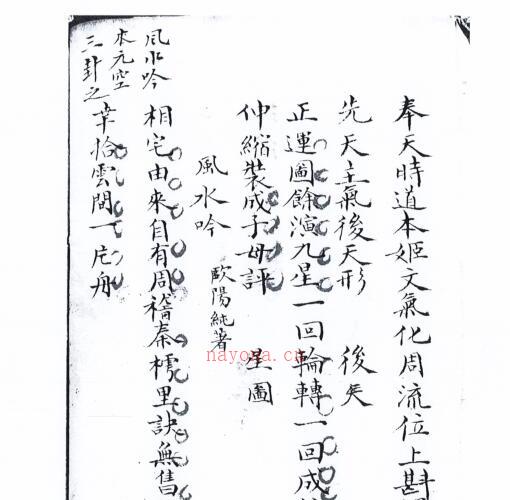 奉天時道本姬文氣化周流位上斟
先天主氣後天形 後天
正運圖餘演九星一回輪轉一回成
伸縮裝成子母評 星圖
風水吟 歐陽純著
相宅由來自有周稽秦樗里訣無售
幸拾雲間一片舟
風水吟
本元空
三卦之
nayona.cn